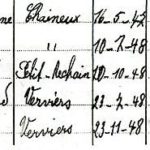 ne Raineux 16-5-42
" 10-2-48
Petit-Rechain 10-10-48
d Verviers 23-2-48
Verviers 23-11-48